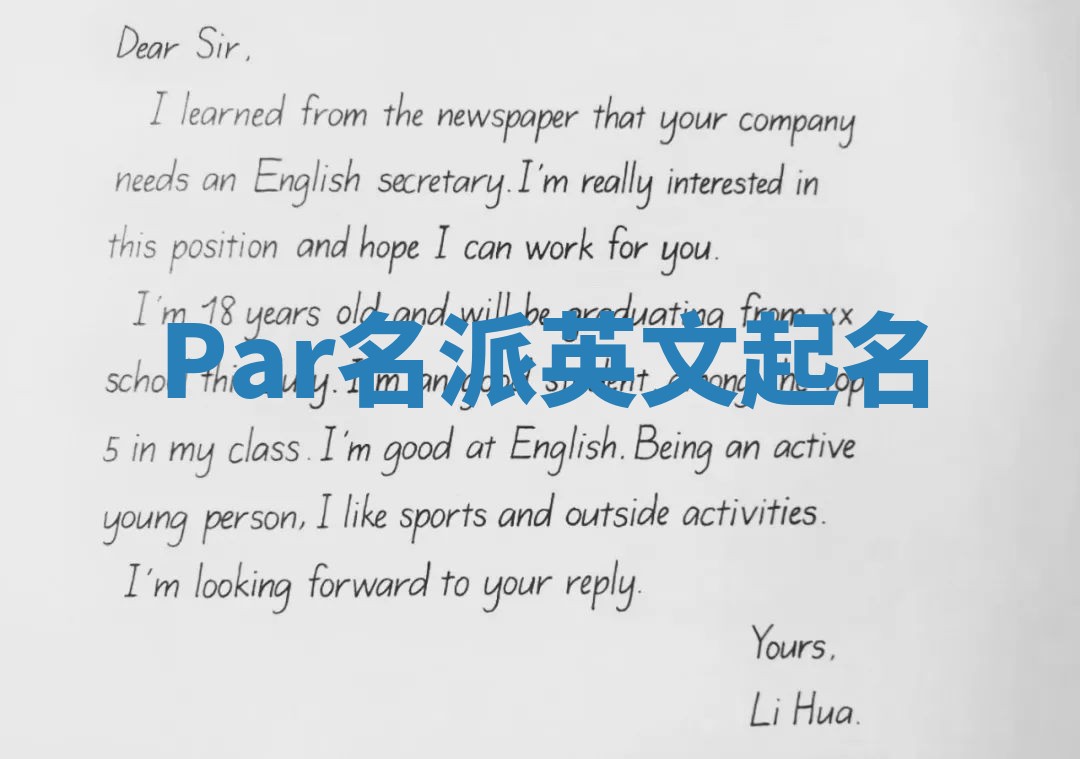 Dear Sir,
I learned from the newspaper that your company
needs an English secretary. I'm really interested in
this position and hope I can work for you.
I'm 18 years old and will be graduating from xx
Par名派英文起名
5 in my class. I'm good at English. Being an active
young person, I like sports and outside activities.
I'm looking forward to your reply.
Yours,
Li Hua.